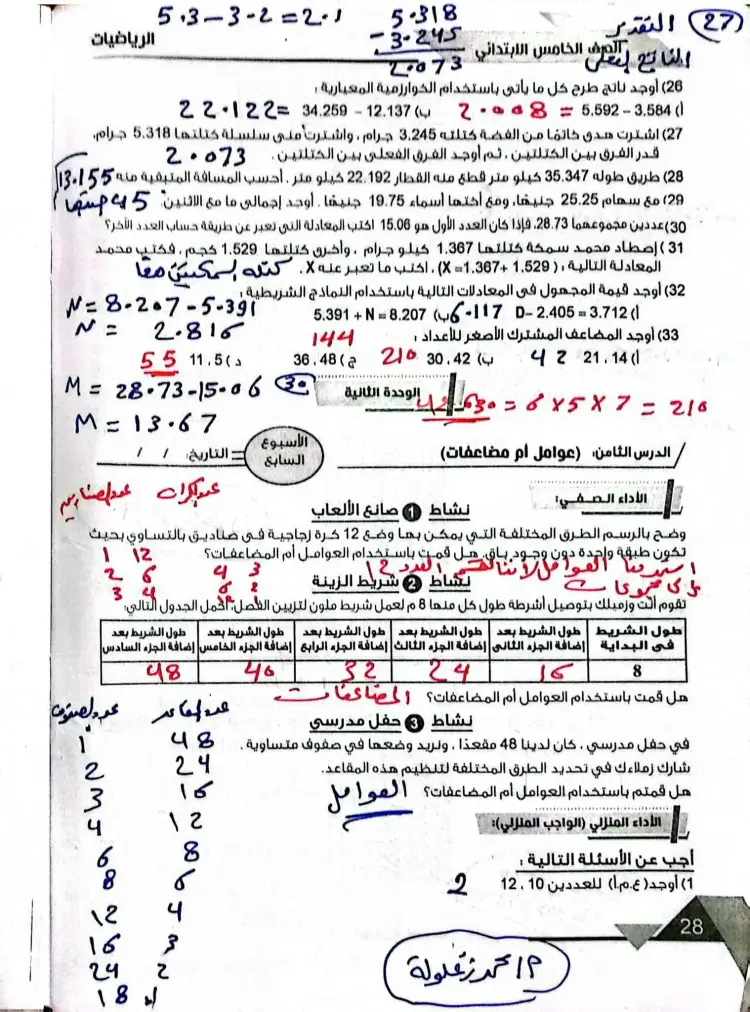 27 التقدير 5.318 5.3 - 3.2 = 2.1
- 3.245
الناتج الفعلى 2.073
الصف الخامس الابتدائي الرياضيات
26) أوجد ناتج طرح كل ما يأتي باستخدام الخوارزمية المعيارية :
أ) 5.592 – 3.584 = 2.008 ب) 34.259 – 12.137 = 22.122
27) اشترت هدى خاتمًا من الفضة كتلته 3.245 جرام ، واشترت منى سلسلة كتلتها 5.318 جرام.
قدر الفرق بين الكتلتين ، ثم أوجد الفرق الفعلى بين الكتلتين . 2.073
28) طريق طوله 35.347 كيلو متر قطع منه القطار 22.192 كيلو متر . أحسب المسافة المتبقية منه 13.155
29) مع سهام 25.25 جنيهًا، ومع أختها أسماء 19.75 جنيهًا . أوجد إجمالى ما مع الاثنين. 45 جنيهًا
30) عددين مجموعهما 28.73، فإذا كان العدد الأول هو 15.06 اكتب المعادلة التي تعبر عن طريقة حساب العدد الآخر؟
31) إصطاد محمد سمكة كتلتها 1.367 كيلو جرام ، وأخرى كتلتها 1.529 كجم ، فكتب محمد
المعادلة التالية : ( 1.529 + 1.367=X) ، اكتب ما تعبر عنه X . كتلة السمكتين معًا
32) أوجد قيمة المجهول في المعادلات التالية باستخدام النماذج الشريطية :
أ) D– 2.405 = 3.712 6.117 ب) 5.391 + N = 8.207
N = 8.207 - 5.391
N = 2.816
33) أوجد المضاعف المشترك الأصغر للأعداد :
أ) 21،14 42 ب) 30،42 210 ج) 36،48 144 د) 11،5 55
30 M = 28.73 - 15.06
M = 13.67
الوحدة الثانية
42، 30 = 6 x 5 x 7 = 210
الأسبوع السابع
الدرس الثامن: (عوامل أم مضاعفات) التاريخ: / /
الأداء الصفي:
نشاط 1 صانع الألعاب
وضح بالرسم الطرق المختلفة التي يمكن بها وضع 12 كرة زجاجية في صناديق بالتساوي بحيث
تكون طبقة واحدة دون وجود باق. هل قمت باستخدام العوامل أم المضاعفات؟
عدد الكرات عدد الصناديق
12 1
6 2
4 3
3 4
2 6
استخدمنا العوامل لأننا نقسم العدد 12
إلى مجموعات
نشاط 2 شريط الزينة
تقوم أنت وزميلك بتوصيل أشرطة طول كل منها 8 م لعمل شريط ملون لتزيين الفصل، أكمل الجدول التالي:
طول الشريط في البداية | طول الشريط بعد إضافة الجزء الثانى | طول الشريط بعد إضافة الجزء الثالث | طول الشريط بعد إضافة الجزء الرابع | طول الشريط بعد إضافة الجزء الخامس | طول الشريط بعد إضافة الجزء السادس
8 | 16 | 24 | 32 | 40 | 48
هل قمت باستخدام العوامل أم المضاعفات؟ المضاعفات
نشاط 3 حفل مدرسي
في حفل مدرسي ، كان لدينا 48 مقعدًا ، ونريد وضعها في صفوف متساوية .
شارك زملاءك في تحديد الطرق المختلفة لتنظيم هذه المقاعد.
هل قمتم باستخدام العوامل أم المضاعفات؟ العوامل
عدد المقاعد عدد الصفوف
48 1
24 2
16 3
12 4
8 6
6 8
4 12
3 16
2 24
الأداء المنزلي (الواجب المنزلي):
أجب عن الأسئلة التالية :
1) أوجد(ع.م.أ) للعددين 10 ، 12 2
28